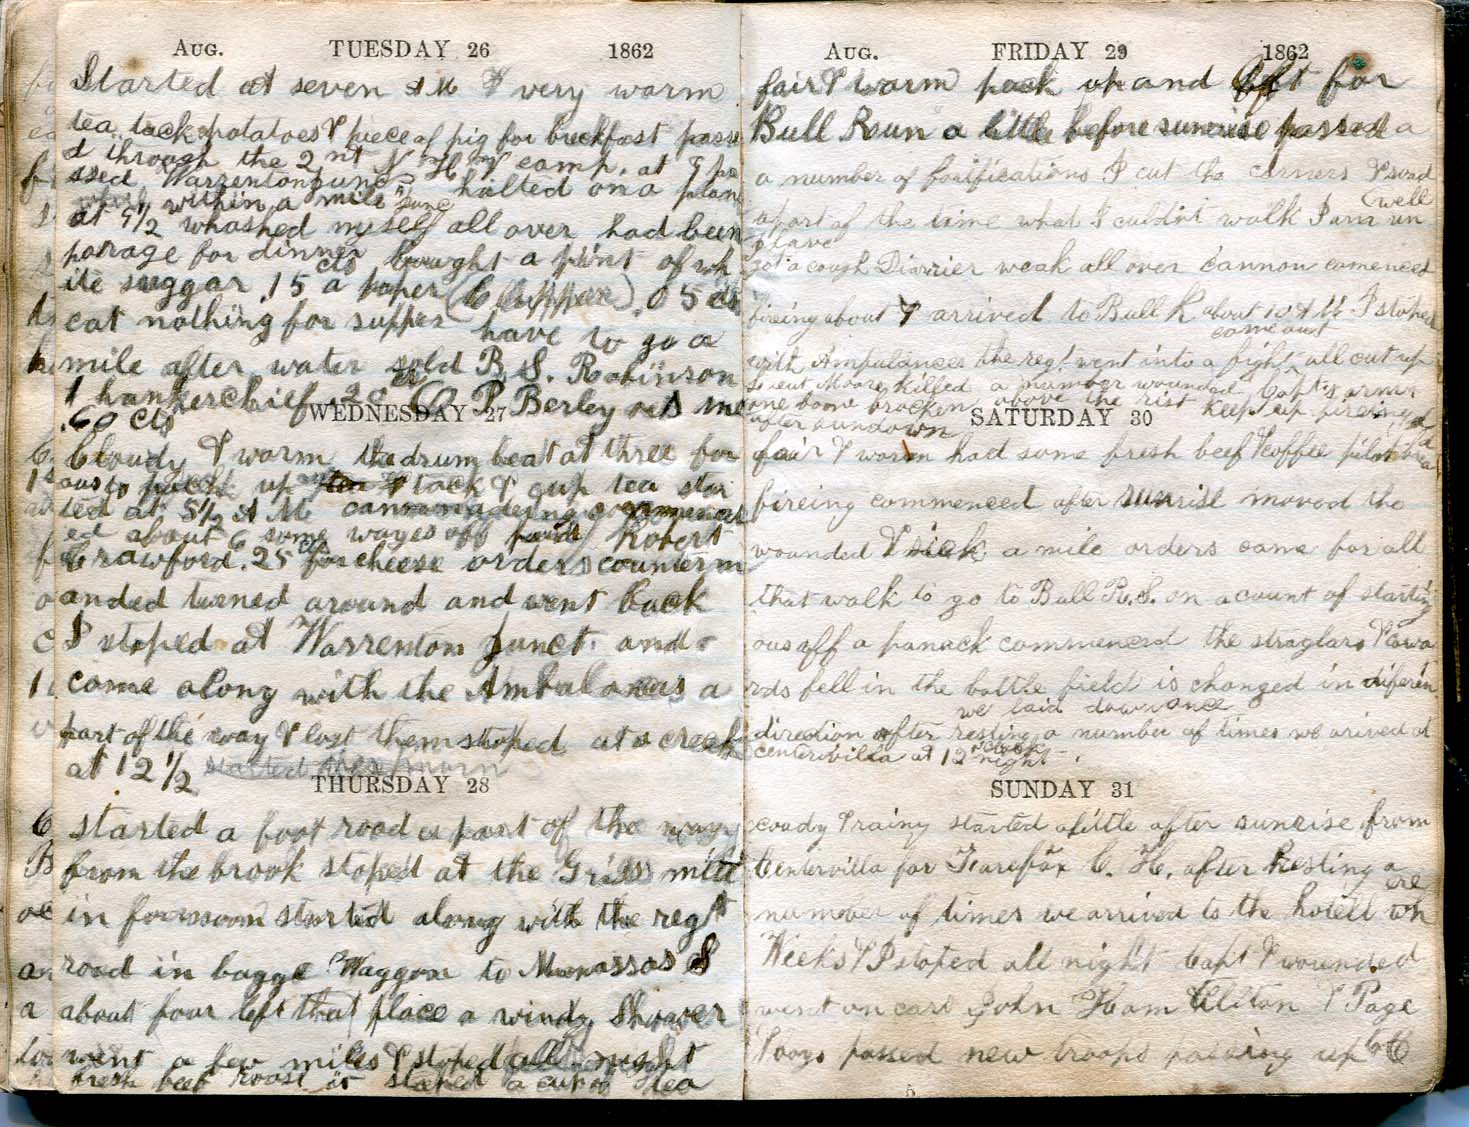 Aug. TUESDAY 26 1862
Started at seven AM & very warm
tea tack potatoes & piece of pig for breckfast passe
d through the 2nt N H V camp. at 9 pa
ssed Warrenton Junc halted on a plan
within a mile Junc
at 9 1/2 whashed myself all over had been
porage for dinner bought a pint of wh
ite suggar .15 cts a paper (Clipper) .05 cts
eat nothing for supper have to go a
mile after water sold B. S. Robinson
1 hankerchief .20 P Berley ows me
.60 cts
WEDNESDAY 27
Cloudy & warm the drum beat at three for
ous to pack up tack & cup tea star
ted at 5 1/2 A M cannonadeing commenc
ed about 6 some wayes off paid Robert
Crawford .25 cts for cheese orders counterm
anded turned around and went back
I stoped at Warrenton Junct. and
came along with the Ambalances a
part of the way & lost them stoped at a creek
at 12 1/2 started
THURSDAY 28
started a foot road a part of the way
from the brook stoped at the Griss mill
in fornoon started along with the regt
road in bagge Waggon to Manassas S
about four left that place a windy Shower
went a few miles & stoped all night
fresh beef roast it steped a cup of tea
Aug. FRIDAY 29 1862
fair & warm pack up and left for
Bull Roun a little before sunrise passed a
a number of foirtifications I cut the corners & road
well
a part of the time what I culdnt walk I am un
I have
got a cough Diarrier weak all over cannon comenced
fireing about 7 arrived to Bull R about 10 A M I stoped
came out
with Ampulances the regt went into a fight all cut up
Lieut Moore killed a number wounded Capts arm
one bone brocken above the rist keept up fireing
after sundown
SATURDAY 30
fair & warm had some fresh beef & coffee pilot bread
fireing commenced after sunrise moved the
wounded & sick a mile orders came for all
that walk to go to Bull R. S. on acount of starting
ous off a panack commenced the straglars & cowa
rds fell in the battle field is changed in diferen
we laid down once
direction after resting a number of times we arived at
centervilla at 12 oclock night
SUNDAY 31
coudy & rainy started alittle after sunrise from
Centervilla for Fairefax C. H. after Resting a
number of times we arrived to the hotell
Weeks & I stoped all night Capt & wounded
went on cars John Ham Clilton & Page
& ours passed new troops passing up to C